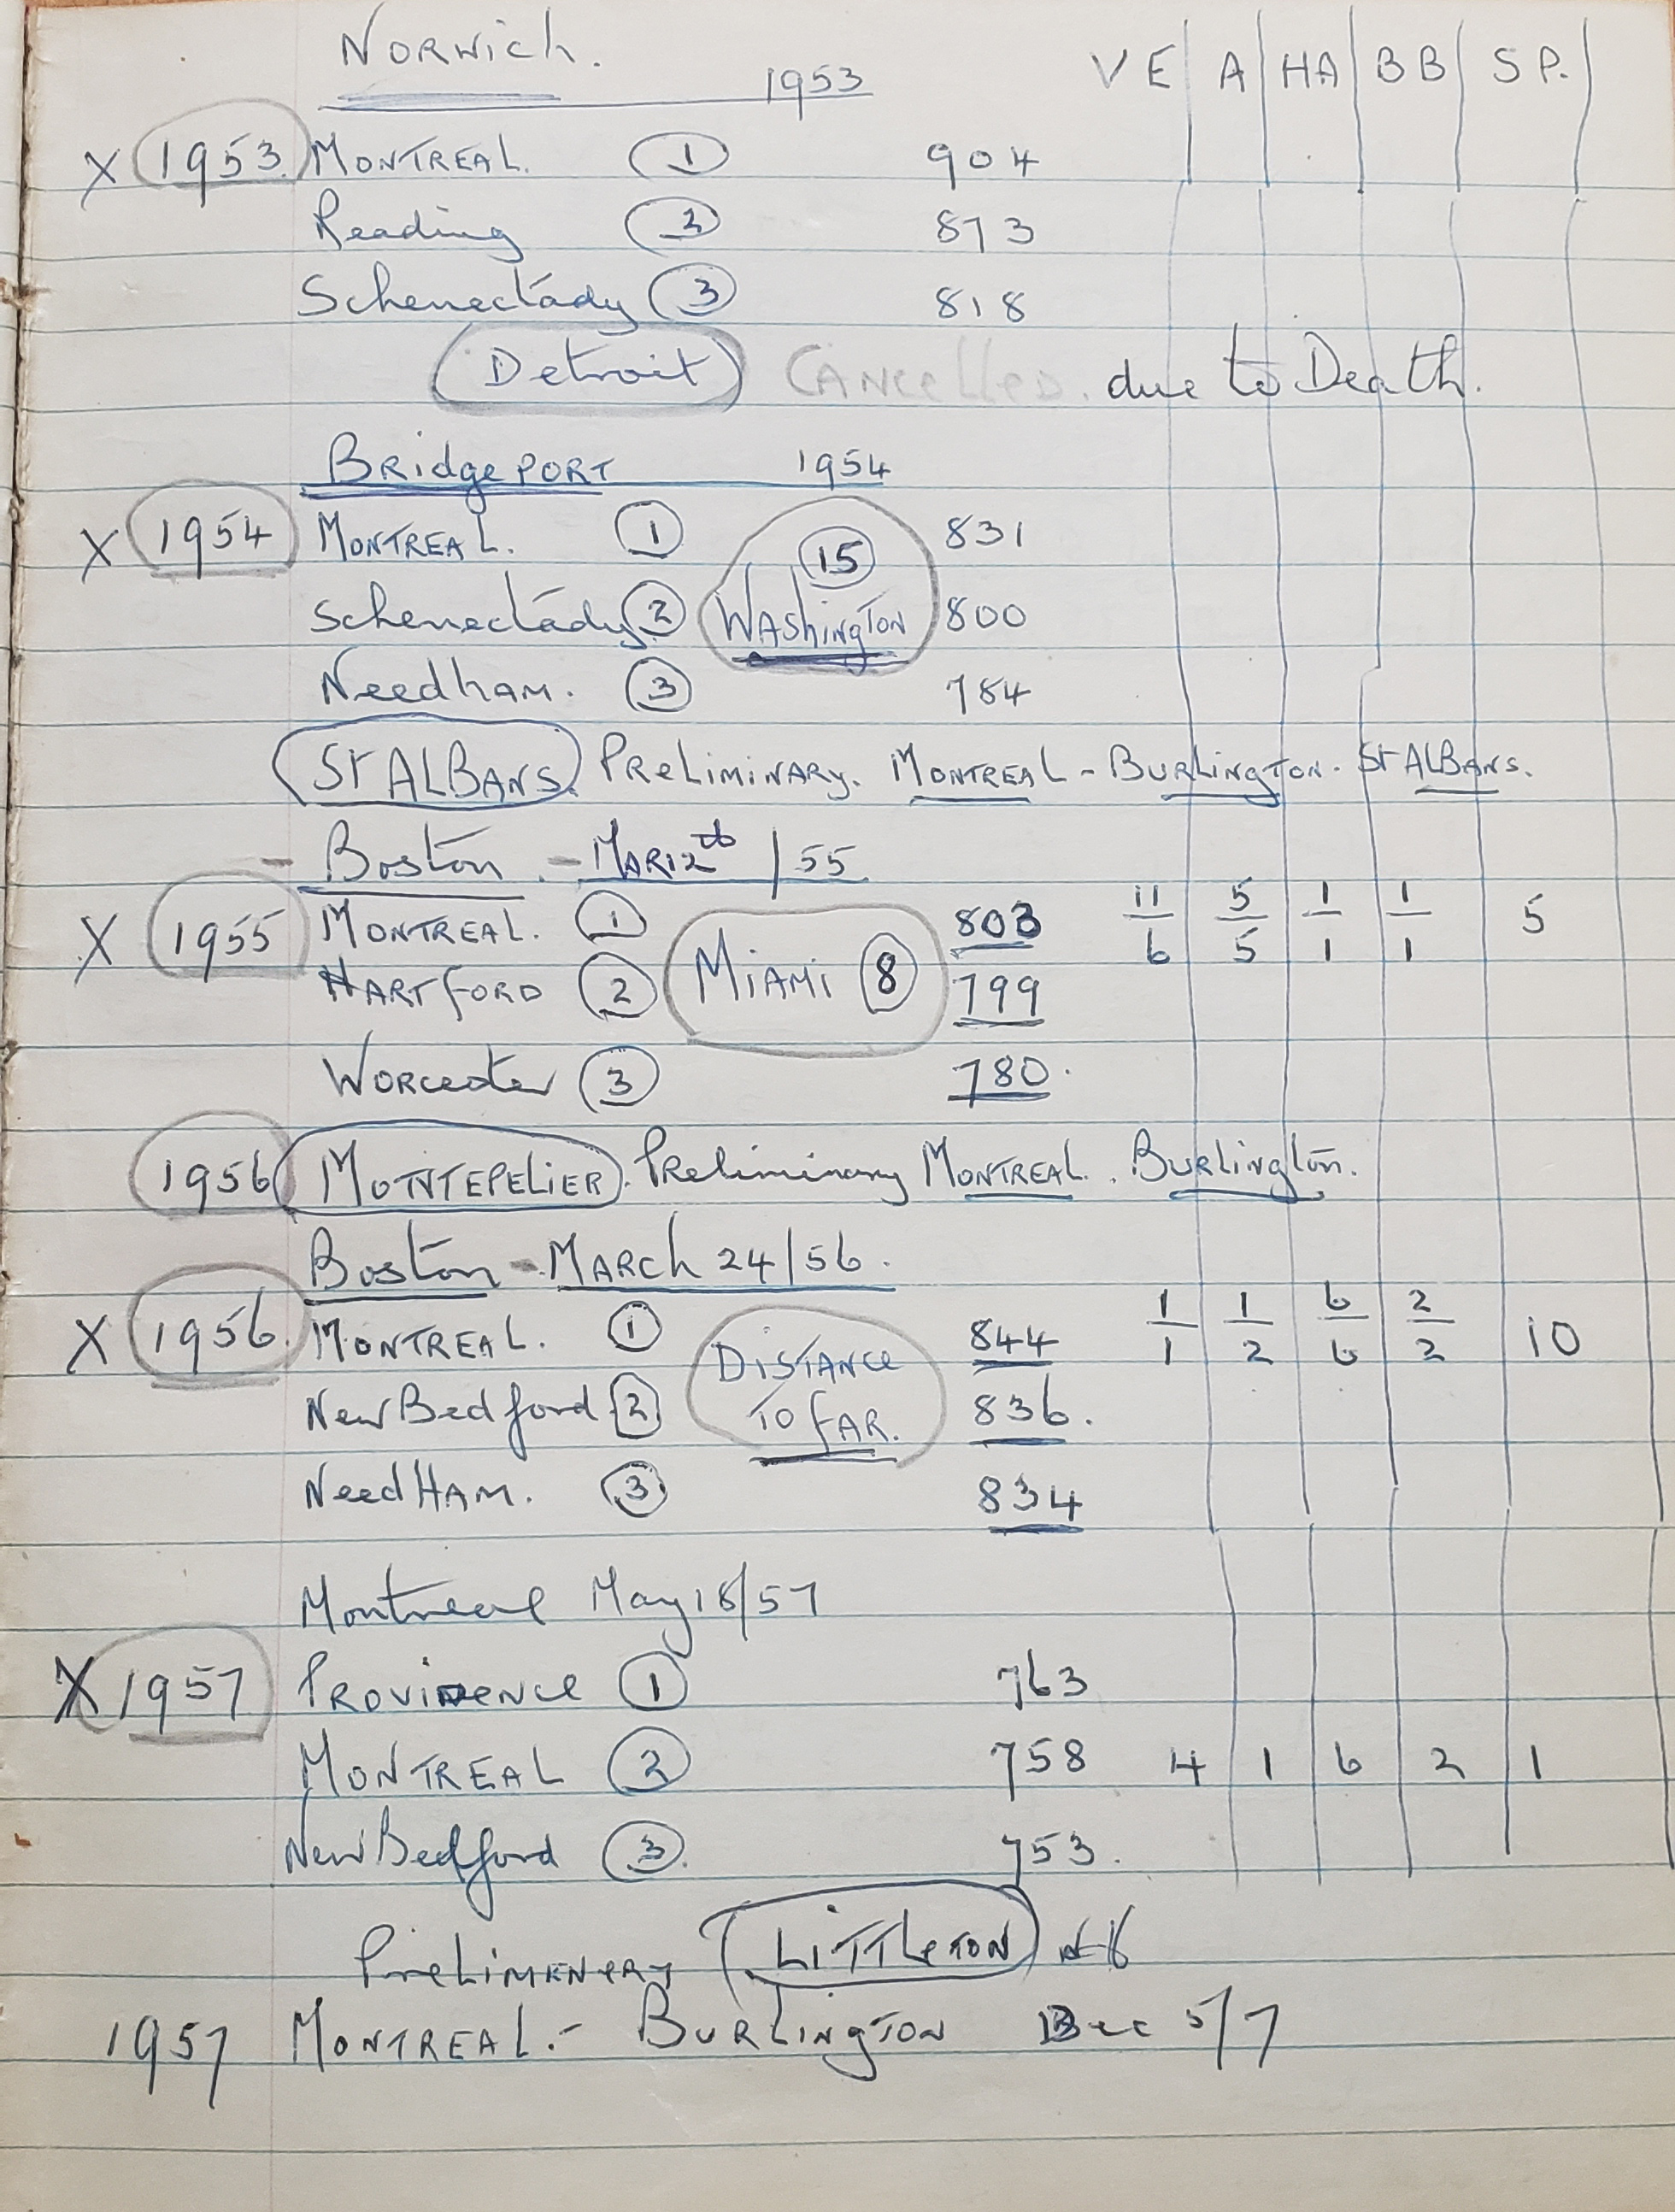 Norwich. 1953 VE A HA BB SP.
X 1953 MONTREAL. 1 904
Reading 2 873
Schenectady 3 818
Detroit CANCElleD. due to Death.
BRidgePORT 1954
X 1954 MONTREAL. 1 831
Schenectady 2 15 WAShingTON 800
NeedhAM. 3 784
St ALBANS. PReLiMiNARY. MONTREAL - BURLingTON. St ALBANS.
- Boston. - MAR 12th /55
X 1955 MONTREAL. 1 803 11/6 5/5 1/1 1/1 5
HARTfORD 2 MiAMi 8 799
WORcester 3 780.
1956 MONTEPELiER. PReliminary MONTREAL. BURLington.
Boston - MARch 24/56.
X 1956. MONTREAL. 1 844 1/1 1/2 6/6 2/2 10
New Bedford 2 DiSTANce TO fAR. 836.
Need HAM. 3 834
Montreal May 18/57
X 1957 PROViDence 1 763
MONTREAL 2 758 4 1 6 2 1
New Bedford 3. 753.
PreLiMENeRY LiTTLeTON
1957 MONTREAL. - BURLingTON Dec 5/7